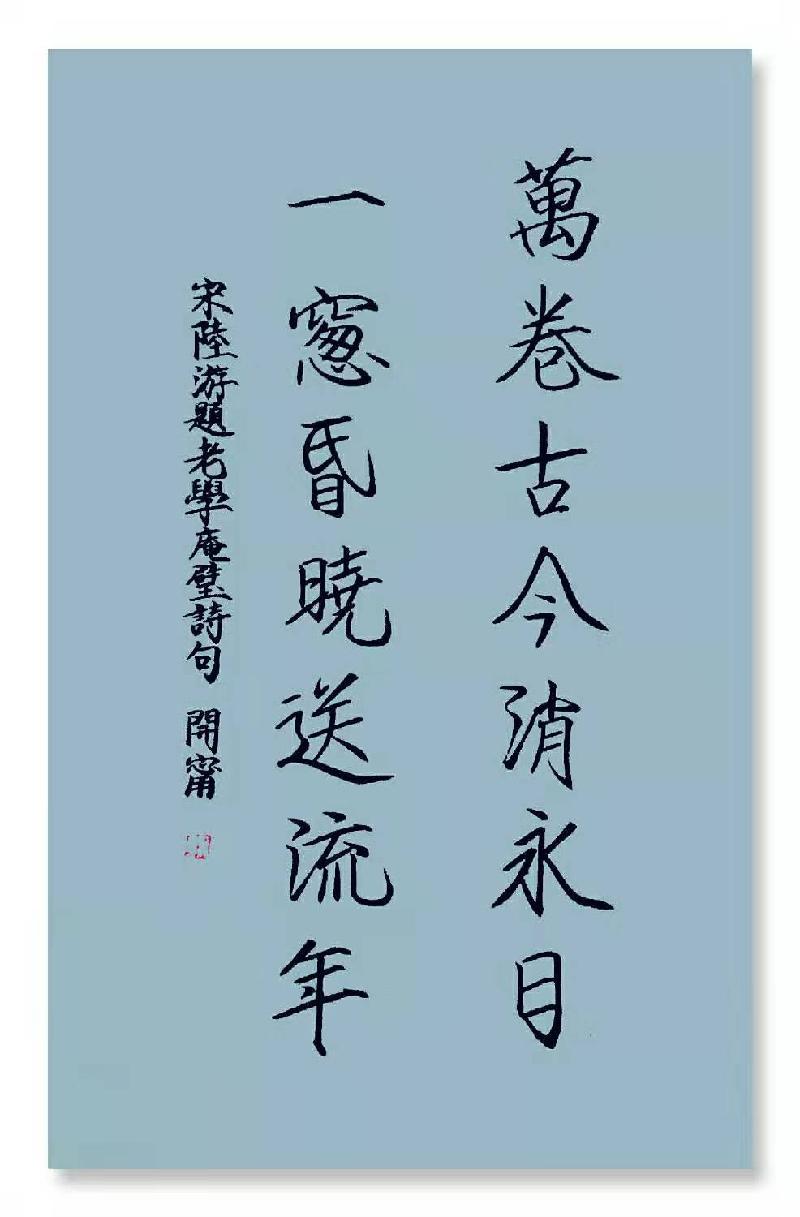 萬卷古今消永日
一窻昏曉送流年
宋陸游題老學庵壁詩句 開甯